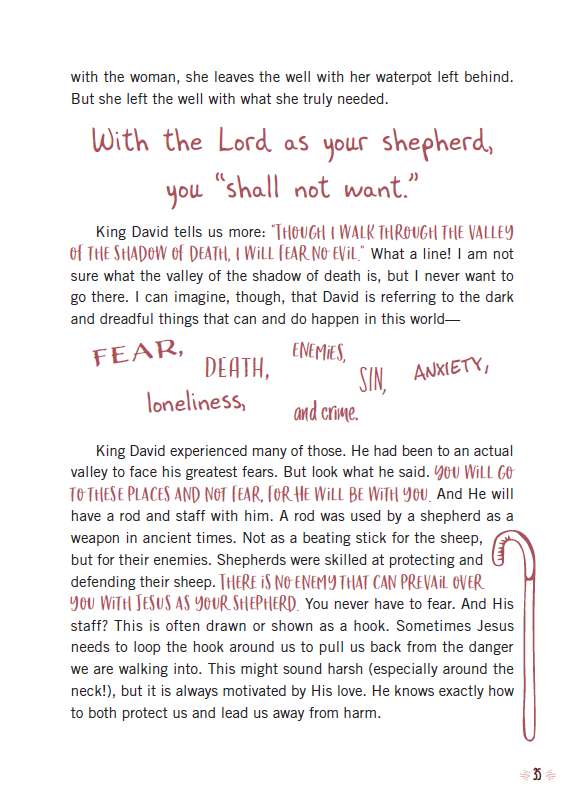 with the woman, she leaves the well with her waterpot left behind.
But she left the well with what she truly needed.
With the Lord as your shepherd,
you “shall not want.”
King David tells us more: “THOUGH I WALK THROUGH THE VALLEY
OF THE SHADOW OF DEATH, I WILL FEAR NO EVIL.” What a line! I am not
sure what the valley of the shadow of death is, but I never want to
go there. I can imagine, though, that David is referring to the dark
and dreadful things that can and do happen in this world—
FEAR,
DEATH,
ENEMIES,
SIN,
ANXIETY,
loneliness,
and crime.
King David experienced many of those. He had been to an actual
valley to face his greatest fears. But look what he said. YOU WILL GO
TO THESE PLACES AND NOT FEAR, FOR HE WILL BE WITH YOU. And He will
have a rod and staff with him. A rod was used by a shepherd as a
weapon in ancient times. Not as a beating stick for the sheep,
but for their enemies. Shepherds were skilled at protecting and
defending their sheep. THERE IS NO ENEMY THAT CAN PREVAIL OVER
YOU WITH JESUS AS YOUR SHEPHERD. You never have to fear. And His
staff? This is often drawn or shown as a hook. Sometimes Jesus
needs to loop the hook around us to pull us back from the danger
we are walking into. This might sound harsh (especially around the
neck!), but it is always motivated by His love. He knows exactly how
to both protect us and lead us away from harm.
35